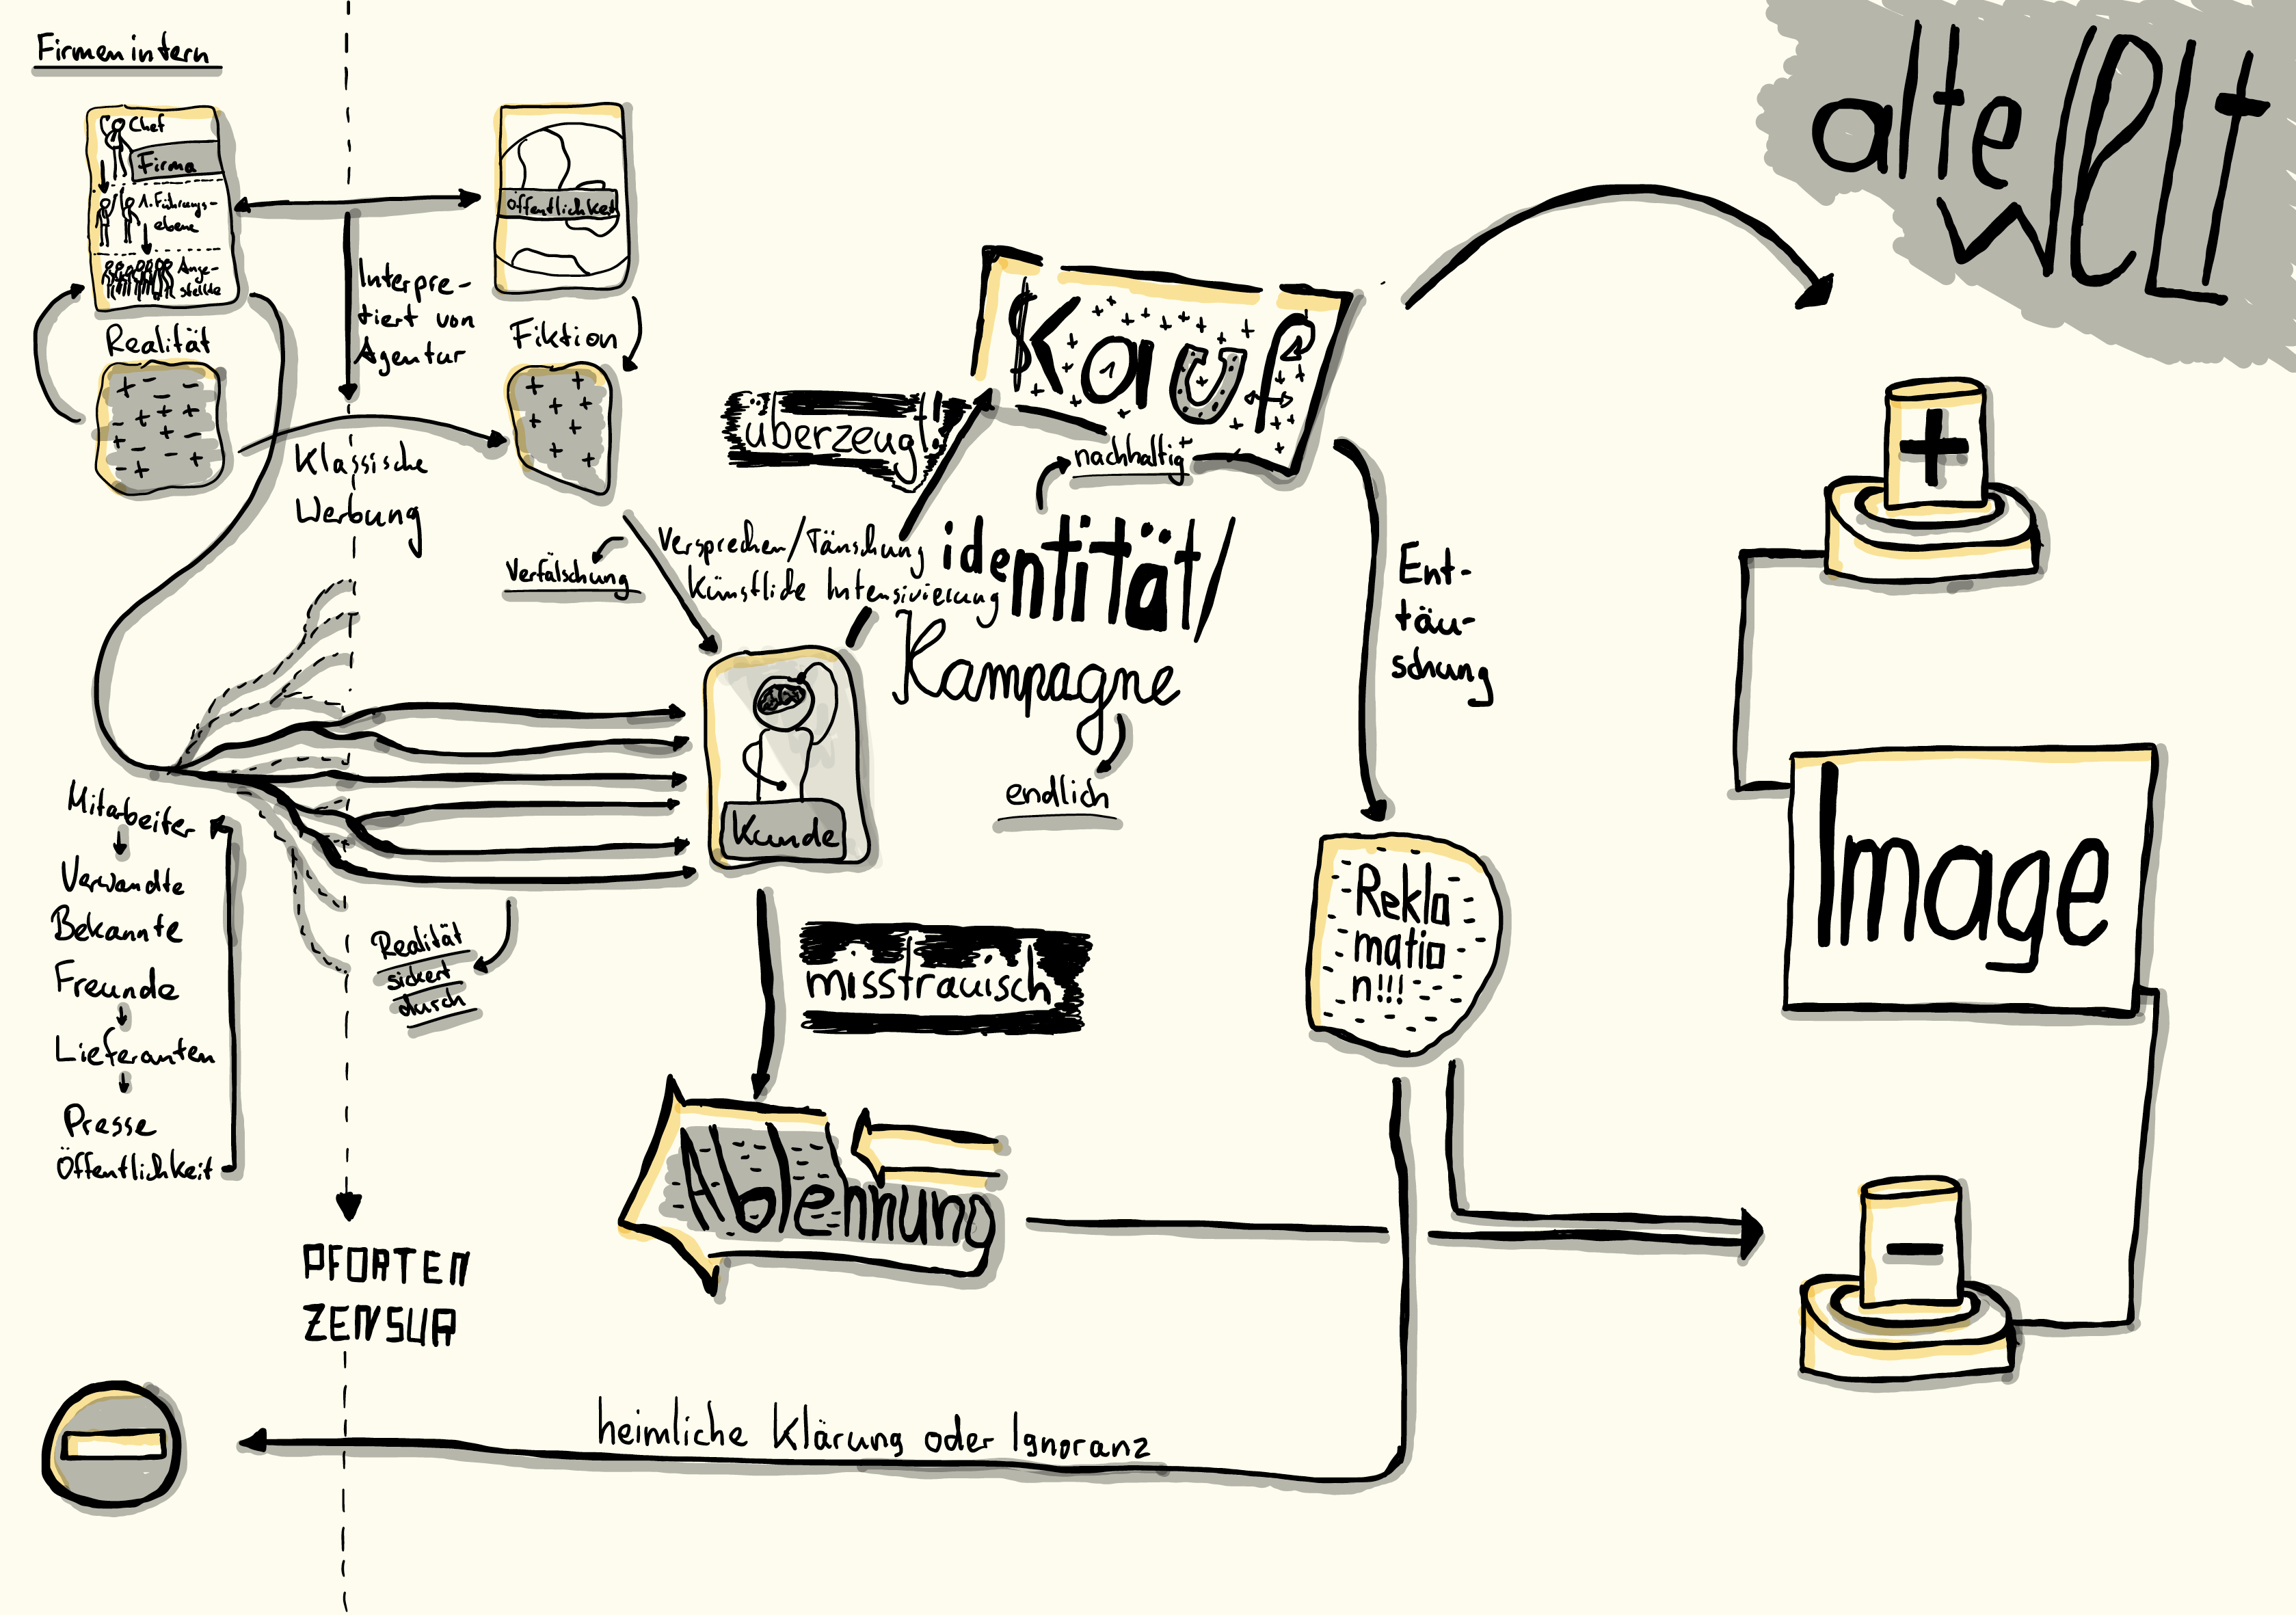 Firmenintern
alte
Welt
Chef
Firma
1. Führungs-
ebene
Ange-
stellte
Öffentlichkeit
Interpre-
tiert von
Agentur
Realität
Fiktion
+ - -
- + + +
+ - - -
- + - +
+ +
+ +
+ +
+ +
Klassische
Werbung
überzeugt!
$Kauf
1
nachhaltig
Versprechen/Täuschung
Künstliche Intensivierung
Verfälschung
identität/
Kampagne
endlich
Ent-
täu-
schung
+
Kunde
Image
Mitarbeiter
Verwandte
Bekannte
Freunde
Lieferanten
Presse
Öffentlichkeit
Realität
sickert
durch
misstrauisch
Rekla
matio
n!!!
Ablehnung
-
PFORTEN
ZENSUR
heimliche Klärung oder Ignoranz